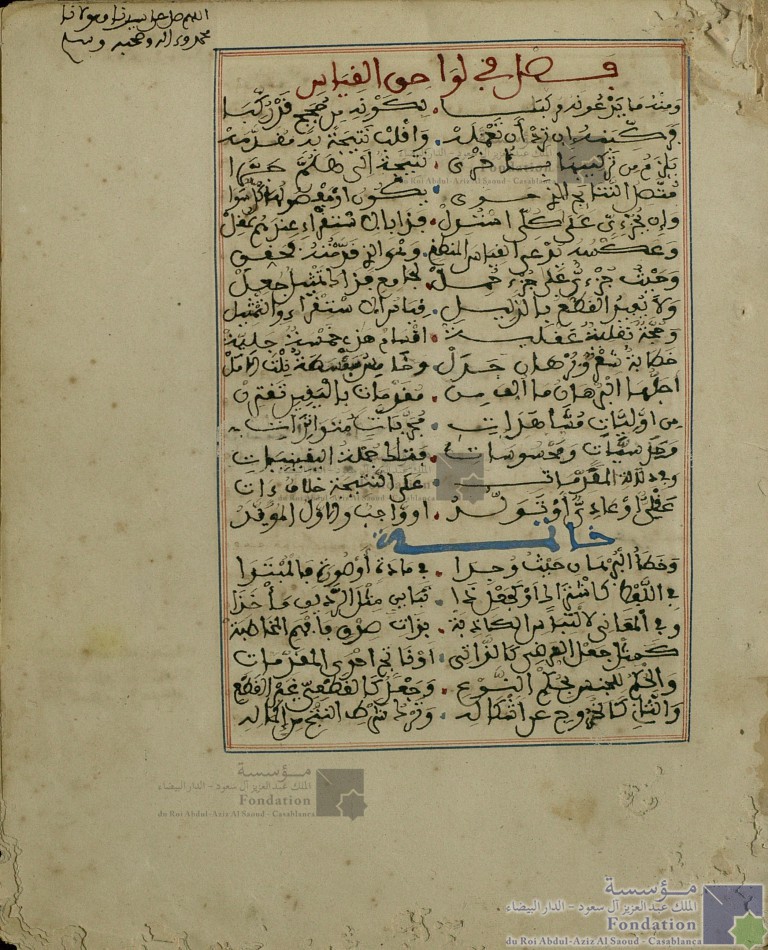 اللهم صل على سيدنا ومولانا
محمد وءاله وصحبه وسلم
فصل في لواحق القياس
ومنه ما يدعونه مركبا . لكونه من حجج قد ركبا
فركبنه ان ترد أن تعلمه . واقلب نتيجة به مقدمه
يلزم من تركيبها بأخرى . نتيجة الى هلم جرا
متصل النتايج الذي حوى . يكون او مفصولها كل سوا
وإن بجزءي على كلي استدل . فذا بالاستقراء عندهم عقل
وعكسه يدعى القياس المنطقي . وهو الذي قدمته فحقق
وحيث جزءي على جزءي حمل . لجامع فذاك تمثيل جعل
ولا يفيد القطع بالدليل . قياس الاستقراء والتمثيل
وحجة نقلية عقلية . اقسام هذي خمسة جلية
خطابة شعر وبرهان جدل . وخامس سفسطة نلت الامل
اجلها البرهان ما الف من . مقدمات باليقين تقترن
من اوليات مشاهدات . مجربات متواترات
وحدسيات ومحسوسات . فتلك جملة اليقينيات
وفي دلالة المقدمات . على النتيجة خلاف ءات
عقلي او عادي أو تولد . او واجب والاول المؤيد
خاتمة
وخطأ البرهان حيث وجدا . في مادة أو صورة فالمبتدا
في اللفظ كاشتراك او كجعل ذا . تباين مثل الرديف مأخذا
وفي المعاني لالتباس الكاذبة . بذات صدق فافهم المخاطبة
كمثل جعل العرضي كالذاتي . او ناتج احدى المقدمات
والحكم للجنس بحكم النوع . وجعل كالقطعي غير القطع
والثان كالخروج عن اشكاله . وترك شرط النتج من اكماله
مؤسسة
الملك عبدالعزيز آل سعود - الدار البيضاء
Fondation
du Roi Abdul-Aziz Al Saoud - Casablanca
مؤسسة
الملك عبدالعزيز آل سعود - الدار البيضاء
Fondation
du Roi Abdul-Aziz Al Saoud - Casablanca